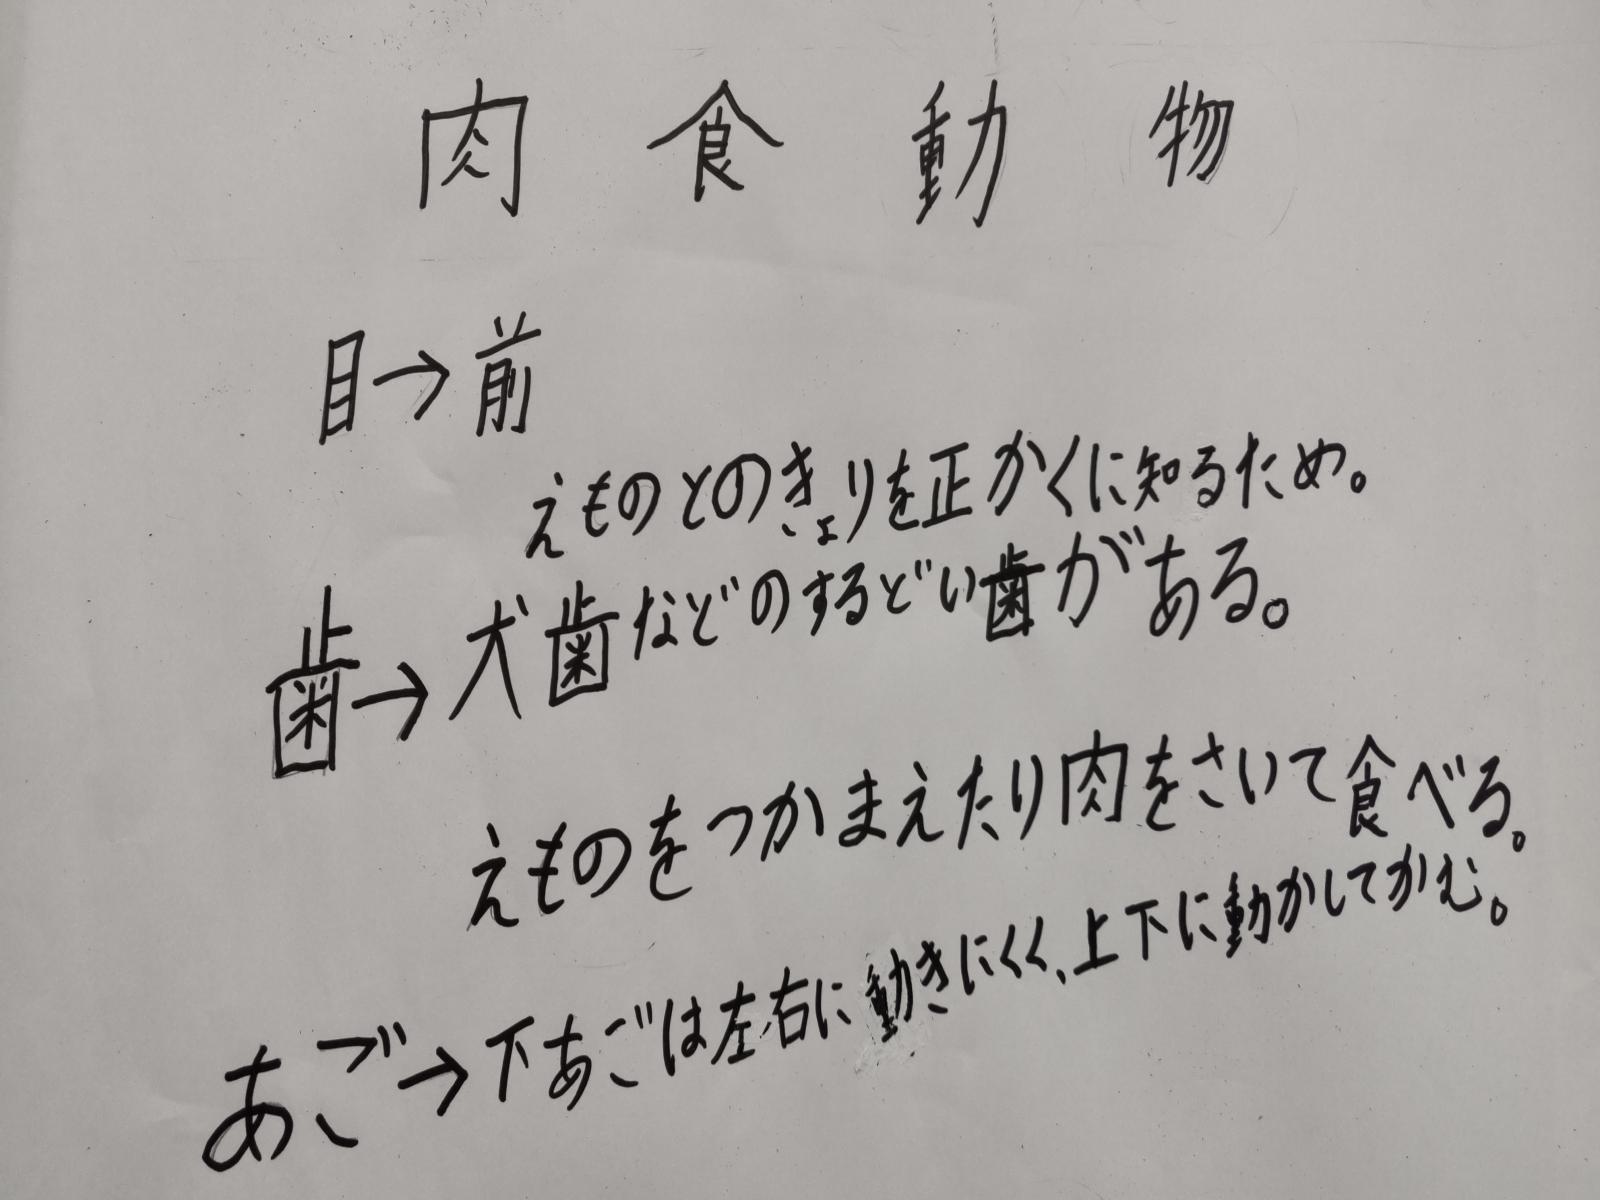 肉食動物
目→前
えものとのきょりを正かくに知るため。
歯→犬歯などのするどい歯がある。
えものをつかまえたり肉をさいて食べる。
あご→下あごは左右に動きにくく、上下に動かしてかむ。